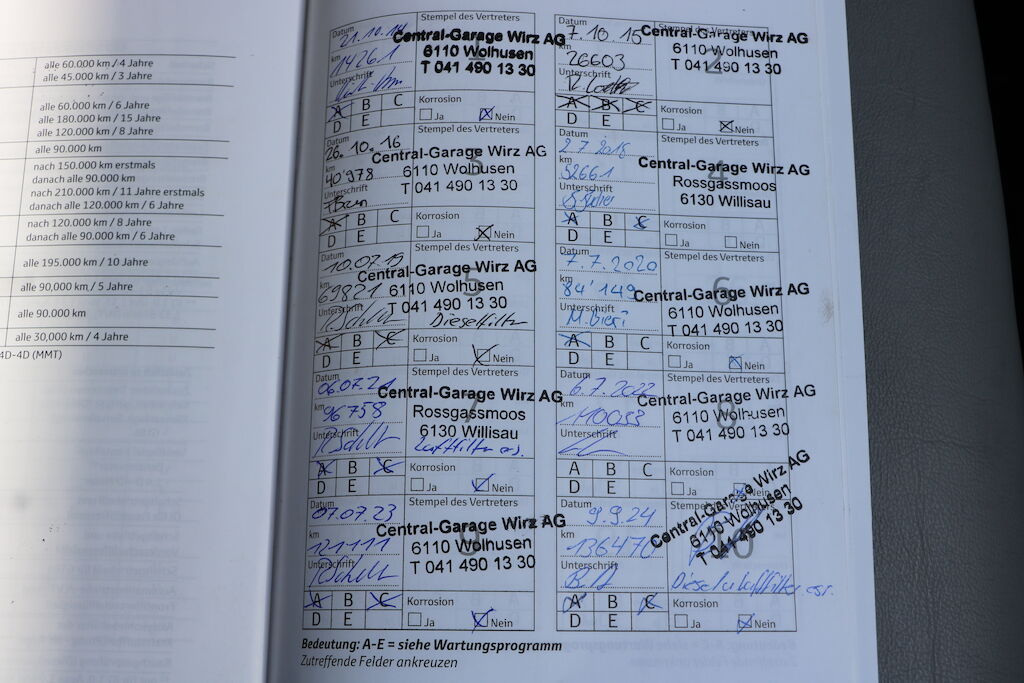 alle 60.000 km / 4 Jahre
alle 45.000 km / 3 Jahre
alle 60.000 km / 6 Jahre
alle 180.000 km / 15 Jahre
alle 120.000 km / 8 Jahre
alle 90.000 km
nach 150.000 km erstmals
danach alle 90.000 km
nach 210.000 km / 11 Jahre erstmals
danach alle 120.000 km / 6 Jahre
nach 120.000 km / 8 Jahre
danach alle 90.000 km / 6 Jahre
alle 195.000 km / 10 Jahre
alle 90,000 km / 5 Jahre
alle 90.000 km
alle 30,000 km / 4 Jahre
4D-4D (MMT)
Datum Stempel des Vertreters
21.10.14 Central-Garage Wirz AG
km 6110 Wolhusen
T 041 490 13 30
Unterschrift
A B C Korrosion
D E Ja Nein
Datum Stempel des Vertreters
7.10.15 Central-Garage Wirz AG
km 26603 6110 Wolhusen 2
T 041 490 13 30
Unterschrift
A B C Korrosion
D E Ja Nein
Datum Stempel des Vertreters
26.10.16 Central-Garage Wirz AG
km 40'978 6110 Wolhusen 3
Unterschrift T 041 490 13 30
A B C Korrosion
D E Ja Nein
Datum Stempel des Vertreters
2.7.2018 Central-Garage Wirz AG
km 52661 Rossgassmoos 4
Unterschrift 6130 Willisau
A B C Korrosion
D E Ja Nein
Datum Stempel des Vertreters
10.07.19 Central-Garage Wirz AG
km 69821 6110 Wolhusen 5
Unterschrift T 041 490 13 30
Dieselfilter
A B C Korrosion
D E Ja Nein
Datum Stempel des Vertreters
7.7.2020 Central-Garage Wirz AG
km 84'149 6110 Wolhusen 6
Unterschrift T 041 490 13 30
M. Bieri
A B C Korrosion
D E Ja Nein
Datum Stempel des Vertreters
06.07.21 Central-Garage Wirz AG
km 96758 Rossgassmoos 7
Unterschrift 6130 Willisau
Luftfilter ers.
A B C Korrosion
D E Ja Nein
Datum Stempel des Vertreters
6.7.2022 Central-Garage Wirz AG
km 110033 6110 Wolhusen 8
Unterschrift T 041 490 13 30
A B C Korrosion
D E Ja Nein
Datum Stempel des Vertreters
07.07.23 Central-Garage Wirz AG
km 121111 6110 Wolhusen 9
Unterschrift T 041 490 13 30
A B C Korrosion
D E Ja Nein
Datum Stempel des Vertreters
9.9.24 Central-Garage Wirz AG
km 136470 6110 Wolhusen 10
T 041 490 13 30
Unterschrift
A B C Korrosion
D E Ja Nein
Bedeutung: A-E = siehe Wartungsprogramm
Zutreffende Felder ankreuzen